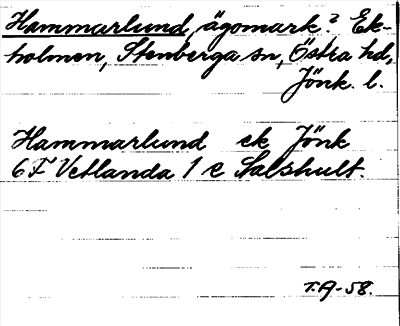 Hammarlund, ägomark? Ek-
holmen, Stenberga sn, Östra hd,
Jönk. l.
Hammarlund ek Jönk
6F Vetlanda 1 e Salshult.
T.A-58.